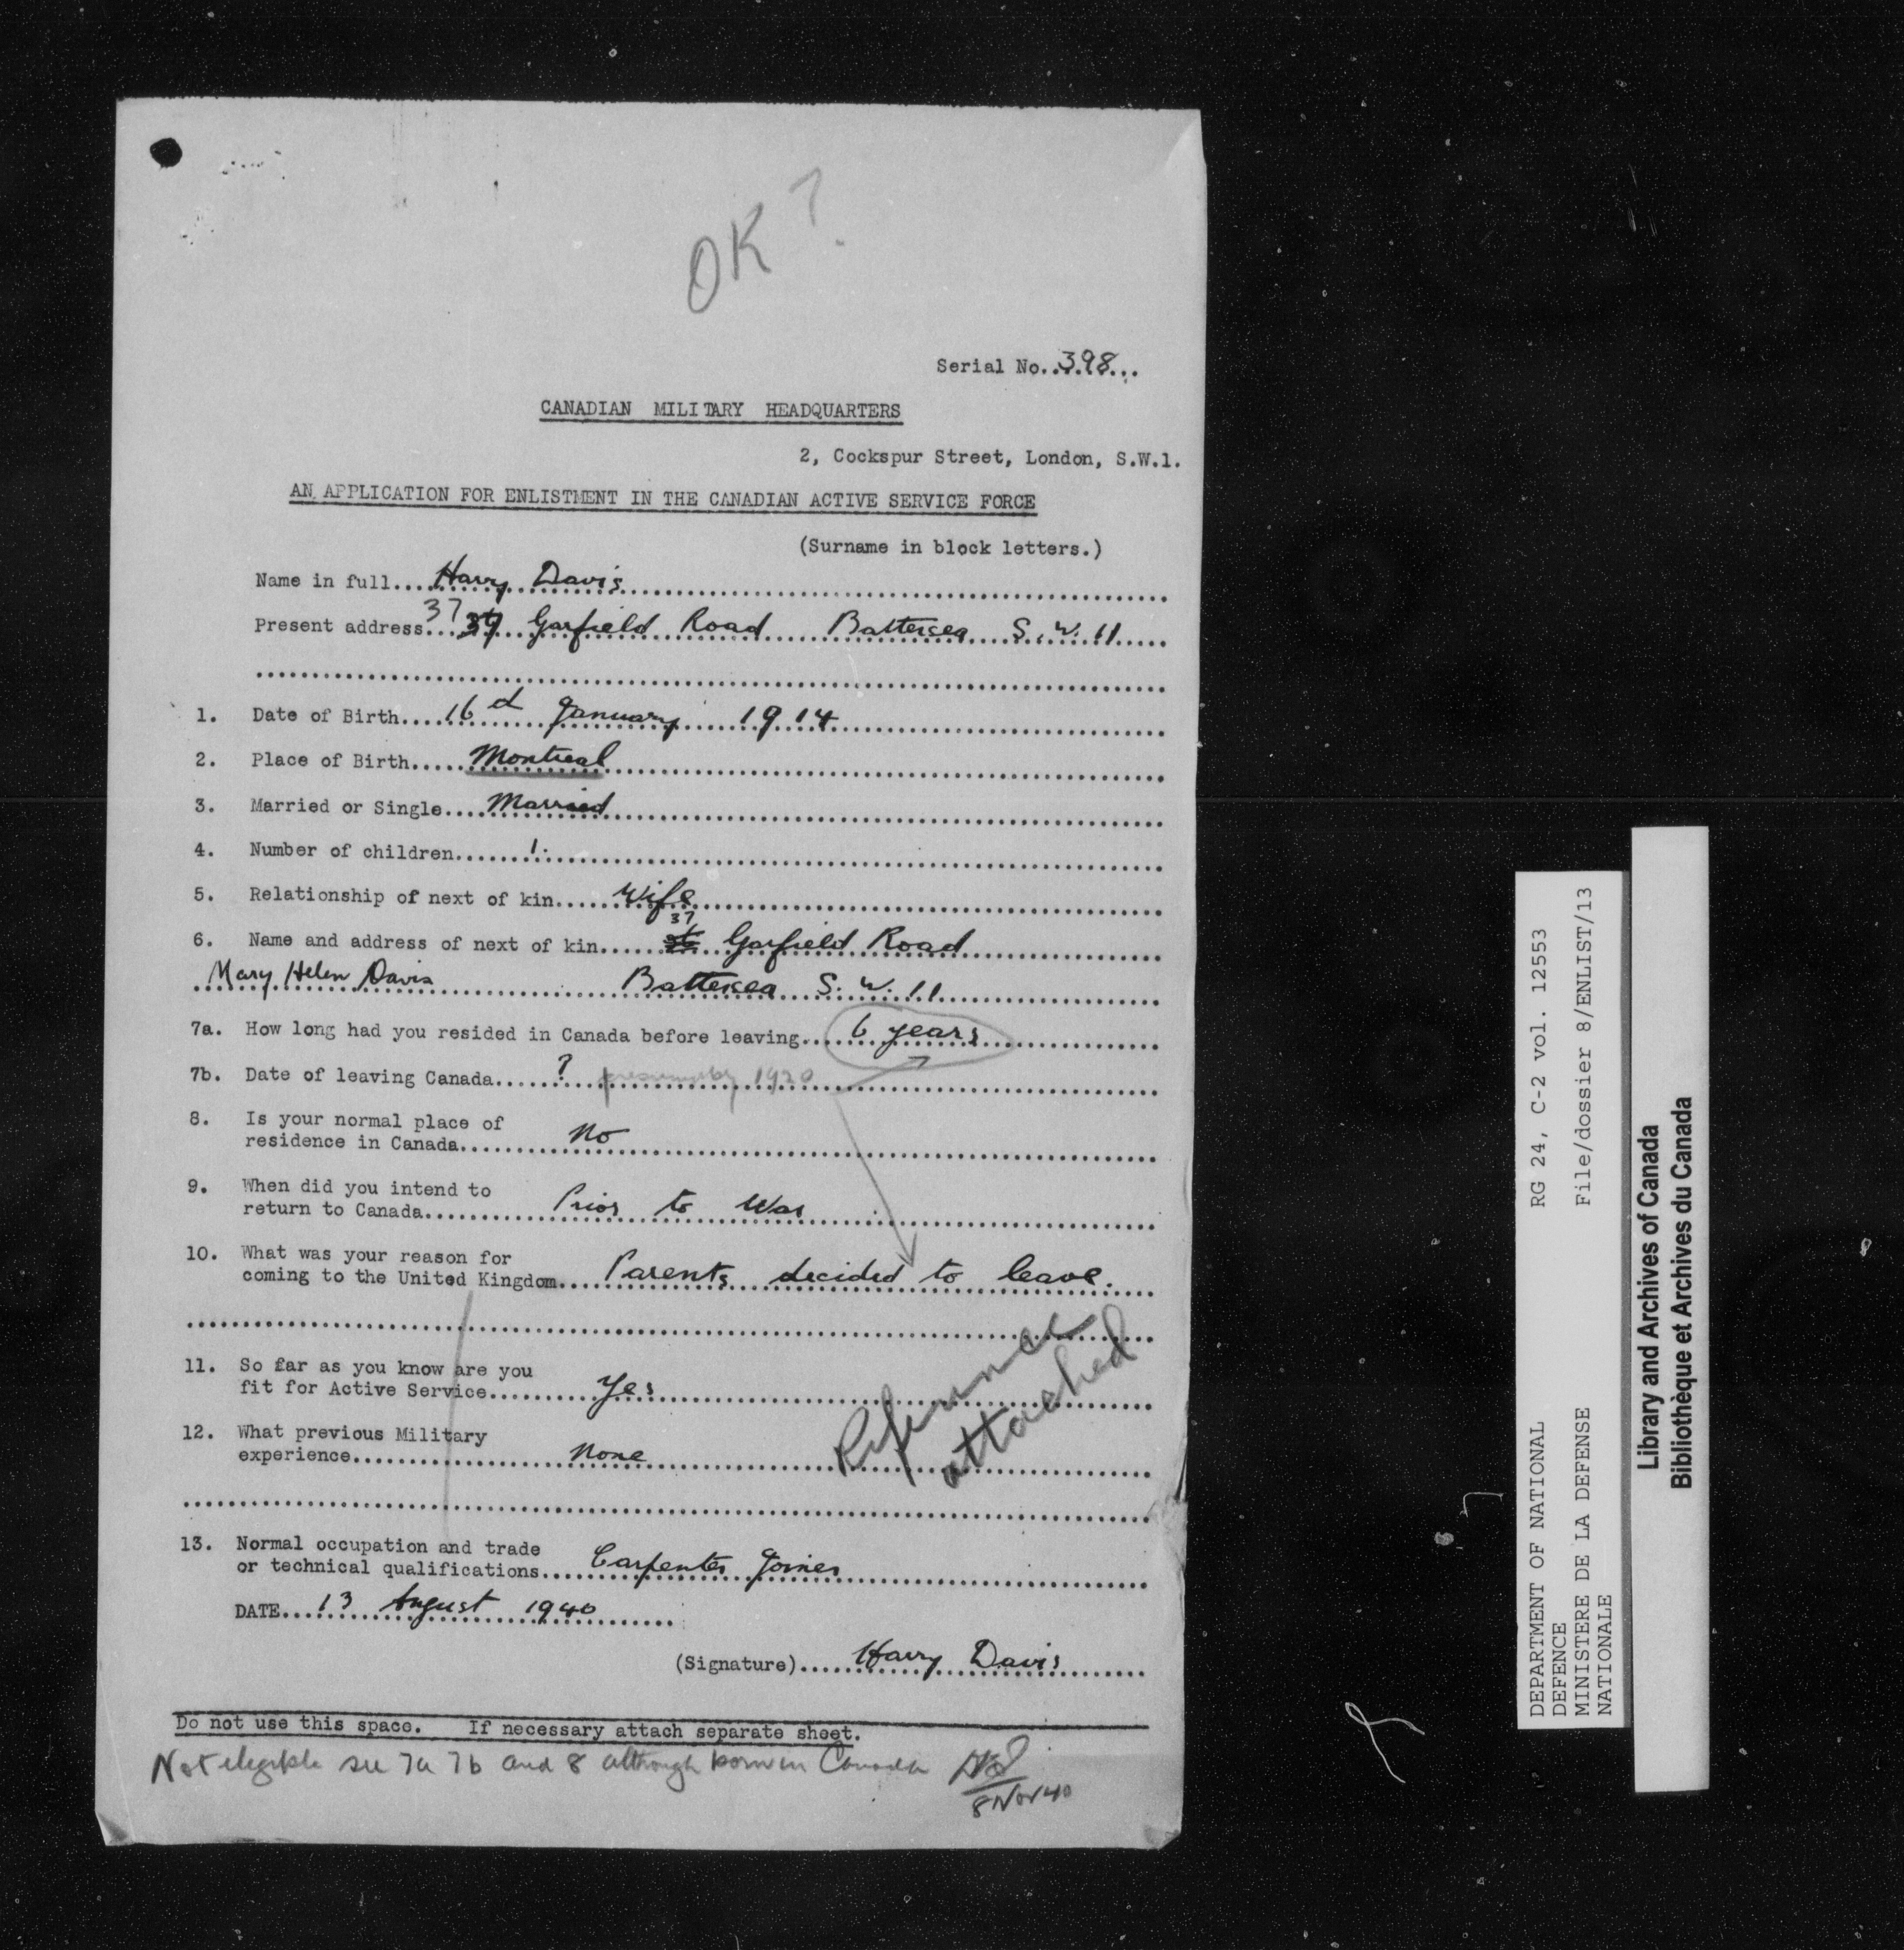 OK?
Serial No...398...
CANADIAN MILITARY HEADQUARTERS
2, Cockspur Street, London, S.W.1.
AN APPLICATION FOR ENLISTMENT IN THE CANADIAN ACTIVE SERVICE FORCE
(Surname in block letters.)
Name in full....Harry Davis
37
Present address... Garfield Road Battersea S.W.11
1. Date of Birth....16th January 1914
2. Place of Birth.....Montreal
3. Married or Single....Married
4. Number of children.......1.
5. Relationship of next of kin.....Wife
37
6. Name and address of next of kin..... Garfield Road
Mary Helen Davis Battersea S.W.11
7a. How long had you resided in Canada before leaving...6 years
7b. Date of leaving Canada......? presumably 1920
8. Is your normal place of
residence in Canada.....No
9. When did you intend to
return to Canada.....Prior to War
10. What was your reason for
coming to the United Kingdom....Parents decided to leave.
11. So far as you know are you
fit for Active Service.....Yes
12. What previous Military
experience.....None
Reference
attached
13. Normal occupation and trade
or technical qualifications....Carpenter Joiner
DATE....13 August 1940
(Signature).....Harry Davis
Do not use this space. If necessary attach separate sheet.
Not elegible see 7a 7b and 8 although born in Canada
8 Nov 40
DEPARTMENT OF NATIONAL
DEFENCE
MINISTERE DE LA DEFENSE
NATIONALE
RG 24, C-2 vol. 12553
File/dossier 8/ENLIST/13
Library and Archives of Canada
Bibliothèque et Archives du Canada